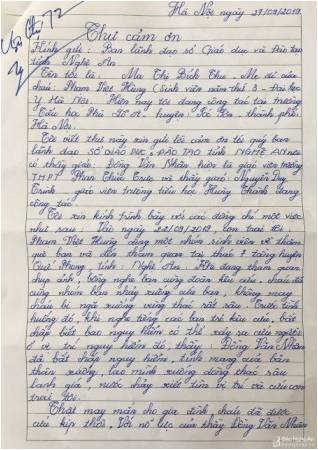 Hà Nội ngày 27/09/2019.
Thư cảm ơn
Kính gửi: Ban lãnh đạo sở Giáo dục và Đào tạo
tỉnh Nghệ An
Tên tôi là: Ma Thị Bích Thu - Mẹ đẻ của
cháu: Phạm Việt Hùng (Sinh viên năm thứ 3 - Đại học
Y Hà Nội. Hiện nay tôi đang công tác tại trường
Tiểu học Phù - huyện Sóc Sơn, thành phố
Hà Nội.
Tôi viết thư này xin gửi lời cảm ơn tới quý ban
lãnh đạo SỞ GIÁO DỤC & ĐÀO TẠO TỈNH NGHỆ AN
có thầy giáo: Đồng Văn Nhân hiện là giáo viên trường
THPT Phan Thúc Trực và thầy giáo: Nguyễn Duy
Trinh giáo viên trường tiểu học Hưng Thành đang
công tác.
Tôi xin kính trình bày với các đồng chí một việc
như sau: Vào ngày 22/09/2019, con trai tôi
Phạm Việt Hùng cùng một nhóm sinh viên về thăm
quê bạn và đến tham quan tại thác 7 tầng huyện
Quế Phong tỉnh: Nghệ An. Khi đang tham quan
chụp ảnh, bỗng nghe tiếng đoàn kêu cứu, cháu đã
cùng nhóm bạn xuống cứu bạn, không may
cháu bị ngã xuống vùng thác rất sâu. Trước tình
huống đó, khi nghe tiếng các bạn trẻ kêu cứu, bất
chấp bất bao nguy hiểm có thể xảy ra cứu người
ở vị trí nguy hiểm đó, thầy Đồng Văn Nhân
đã bất chấp nguy hiểm, tính mạng của bản
thân xuống, lao mình xuống dòng thác sâu
lạnh giá, nước chảy xiết tìm vị trí và cứu con
trai tôi.
Thật may mắn cho gia đình, cháu đã được
cứu kịp thời. Với nỗ lực của thầy Đồng Văn Nhân
Báo Nghệ An